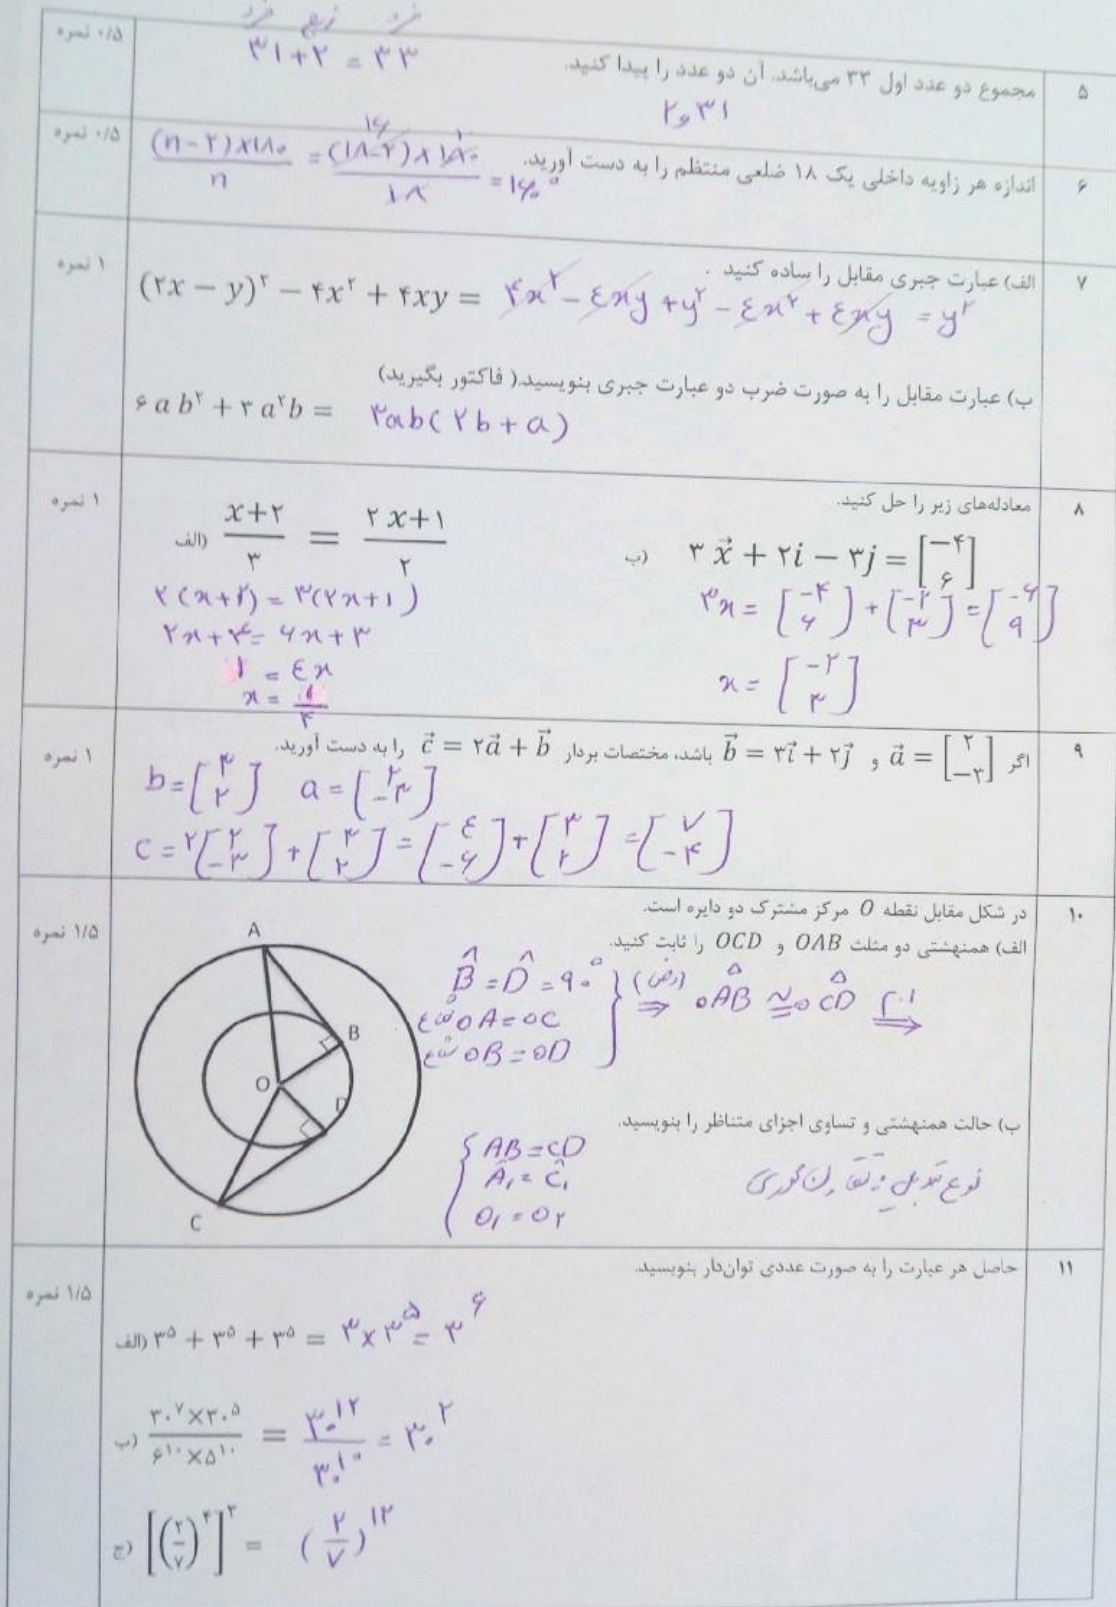 فرد زوج فرد
۳۱+۲ = ۳۳
۵ مجموع دو عدد اول ۳۳ می‌باشد. آن دو عدد را پیدا کنید. ۰/۵ نمره
۲ و ۳۱
۶ اندازه هر زاویه داخلی یک ۱۸ ضلعی منتظم را به دست آورید. ۰/۵ نمره
(n-۲)×۱۸۰ / n = (۱۸-۲)×۱۸۰ / ۱۸ = ۱۶۰°
۷ الف) عبارت جبری مقابل را ساده کنید . ۱ نمره
(۲x − y)² − ۴x² + ۴xy = ۴x² − ۴xy + y² − ۴x² + ۴xy = y²
ب) عبارت مقابل را به صورت ضرب دو عبارت جبری بنویسید.( فاکتور بگیرید)
۶ab² + ۳a²b = ۳ab(۲b+a)
۸ معادله‌های زیر را حل کنید. ۱ نمره
الف) x+۲ / ۳ = ۲x+۱ / ۲
۲(x+۲) = ۳(۲x+۱)
۲x+۴ = ۶x+۳
۱ = ۴x
x = ۱/۴
ب) ۳x⃗ + ۲i − ۳j = [−۴ ۶]
۳x = [−۴ ۶] + [−۲ ۳] = [−۶ ۹]
x = [−۲ ۳]
۹ اگر a⃗ = [۲ −۳] و b⃗ = ۳i⃗ + ۲j⃗ باشد، مختصات بردار c⃗ = ۲a⃗ + b⃗ را به دست آورید. ۱ نمره
b = [۳ ۲] a = [۲ −۳]
c = ۲[۲ −۳] + [۳ ۲] = [۴ −۶] + [۳ ۲] = [۷ −۴]
۱۰ در شکل مقابل نقطه O مرکز مشترک دو دایره است. ۱/۵ نمره
الف) همنهشتی دو مثلث OAB و OCD را ثابت کنید.
A
B
O
D
C
B̂ = D̂ = ۹۰°
شعاع OA = OC
شعاع OB = OD
(وض) ⇒ OAB ≅ OCD ⇒
ب) حالت همنهشتی و تساوی اجزای متناظر را بنویسید.
AB = CD
Â₁ = Ĉ₁
O₁ = O₂
نوع تبدیل : تقارن محوری
۱۱ حاصل هر عبارت را به صورت عددی توان‌دار بنویسید. ۱/۵ نمره
الف) ۳⁵ + ۳⁵ + ۳⁵ = ۳×۳⁵ = ۳⁶
ب) ۳۰⁷×۳۰⁵ / ۶¹⁰×۵¹⁰ = ۳۰¹² / ۳۰¹⁰ = ۳۰²
ج) [(۲/۷)⁴]³ = (۲/۷)¹²